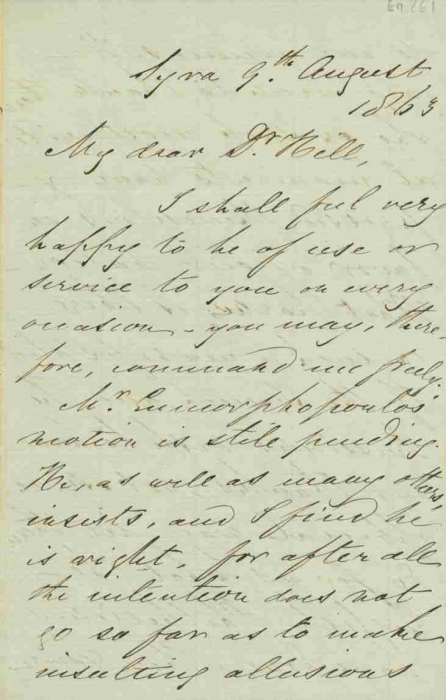 En. 261
Syra 9th. August
1863
My dear Dr. Hill,
I shall feel very
happy to be of use or
service to you on every
occasion - you may, there-
fore, command me freely.
Mr. Eumorphopoulos'
motion is still pending.
He, as well as many others,
insists, and I find he
is right, for after all
the intention does not
go so far as to make
insulting allusions